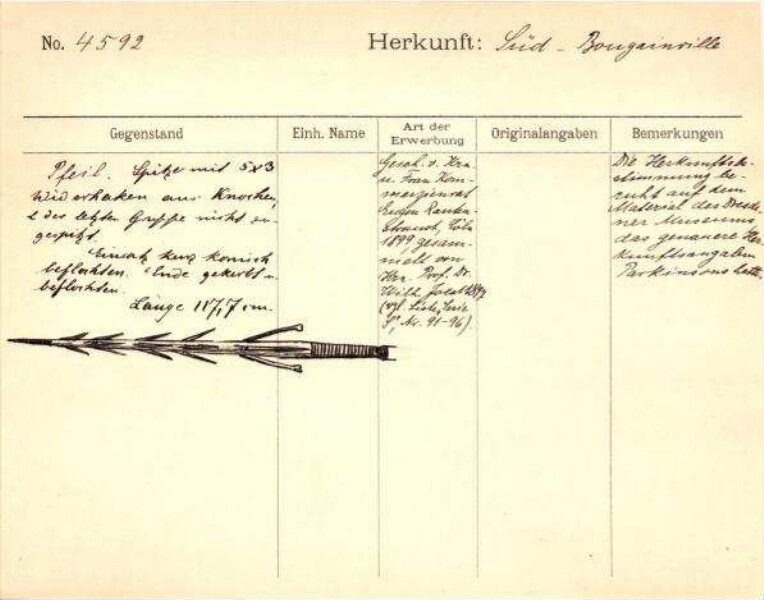 No. 4592
Herkunft: Süd - Bougainville
Gegenstand
Einh. Name
Art der
Erwerbung
Originalangaben
Bemerkungen
Pfeil. Spitze mit 5x3
Widerhaken aus Knochen,
d. des letzten Gruppe nicht zu-
gespitzt.
Einsatz kurz konisch
beflochten. Ende gekerbt u.
beflochten.
Länge 187,7 cm.
Gesch. v. Hrn.
u. Frau Kom-
merzienrat
Eugen Rauten-
strauch, Cöln
1899 gesam-
melt von
Hrn. Prof. Dr.
Wilh. Joest 1897
(vgl. Liste, Serie
S, Nr. 91-96).
Die Herkunftsbe-
stimmung be-
ruht auf dem
Material des Dresde-
ner Museums
das genauere Her-
kunftsangaben
Parkinsons hatte.